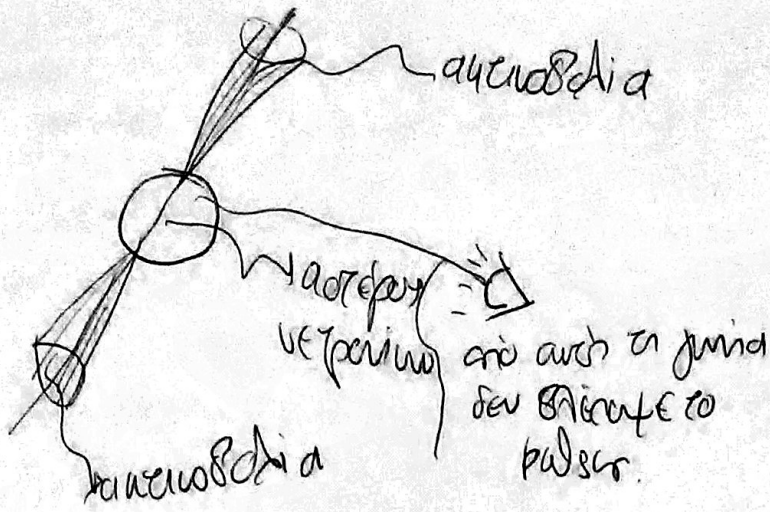 ακτινοβολία
αστέρας
νετρονίων
από αυτή τη γωνία
δεν βλέπουμε το
pulsar.
ακτινοβολία